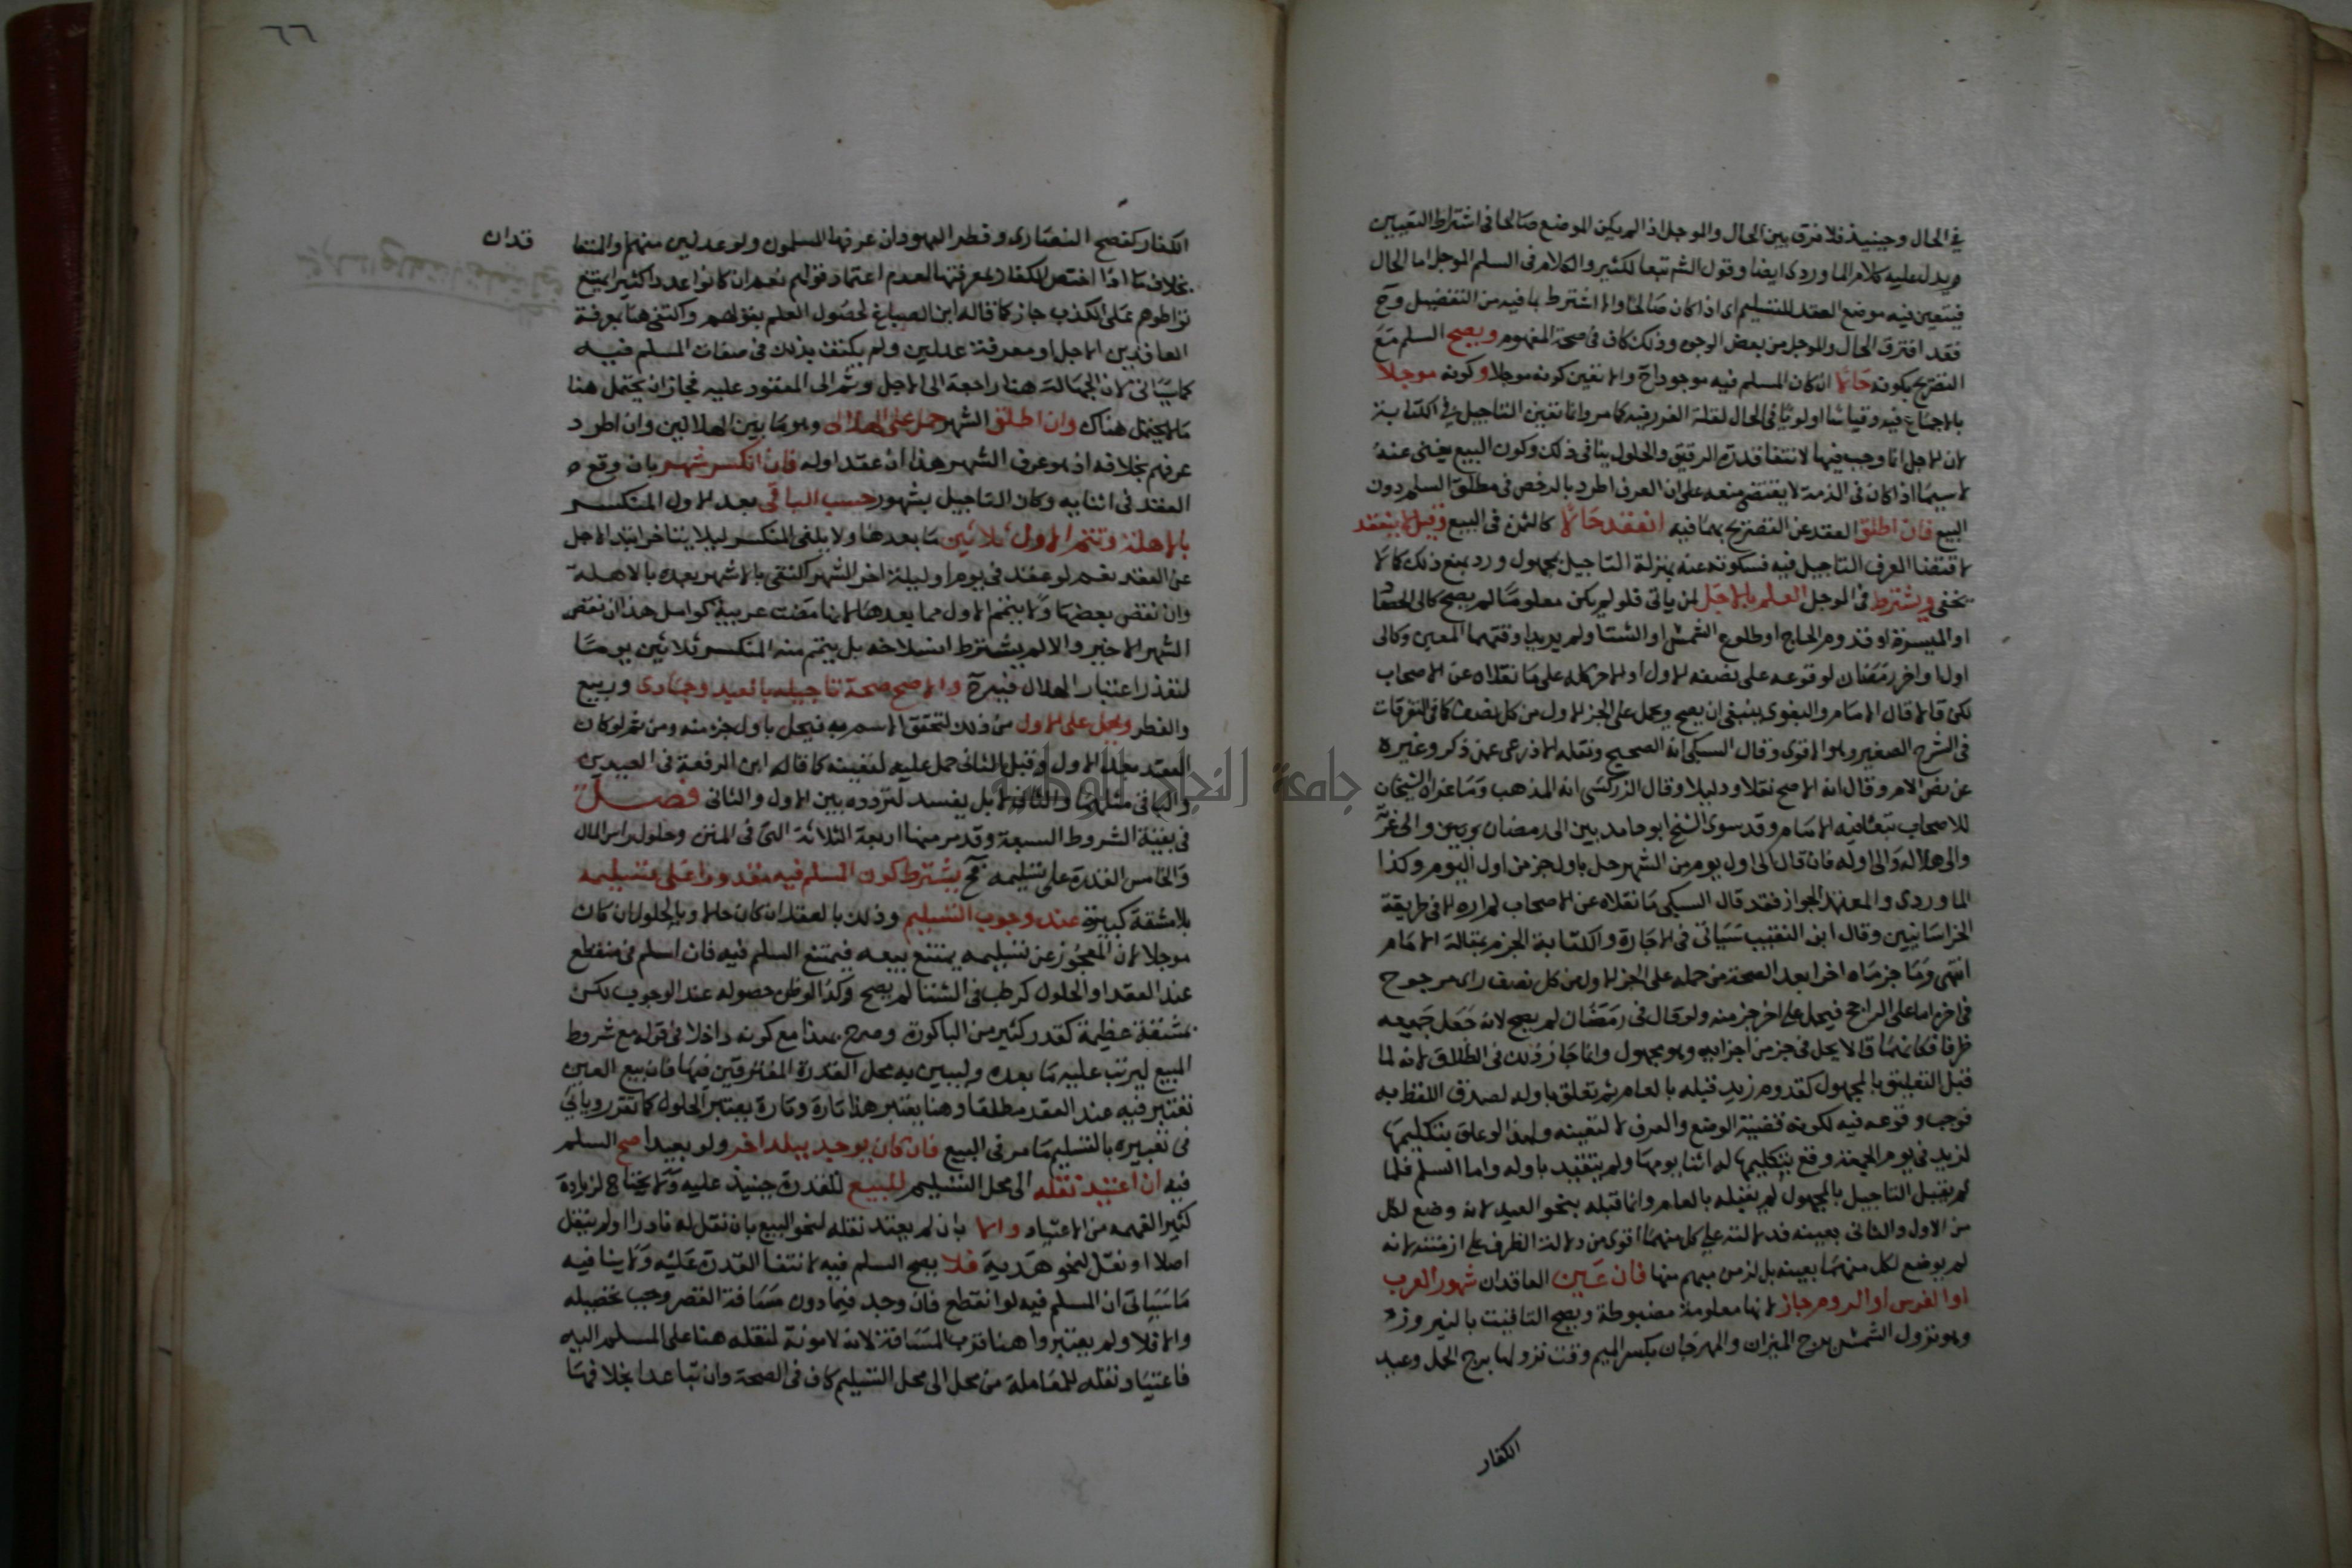 في الحال وحينيذ فلا فرق بين الحال والموجل اذا لم يكن الموضع صالحا في اشتراط التعيين
ويدل عليه كلام الماوردي ايضا وقول الشم تبعا لكثير والكلام في السلم الموجل اما الحال
فيتعين فيه موضع العقد للتسليم اي اذا كان صالحا والا اشترط بما فيه من التفضيل وح
فقد افترق الحال والموجل من بعض الوجوه وذلك كاف في صحة المفهوم ويصح السلم مع
التصريح بكونه حالا ان كان المسلم فيه موجودا ح والا تعين كونه موجلا وكونه موجلا
بالاجماع فيه وقياسا اولويا في الحال لقلة الغرر فيه كما مر وانما تعين التاجيل في الكتابة
لان الاجل انما وجب فيها لانتفا قدرة الرقيق والحلول ينافي ذلك وكون البيع يغني عنه
لا سيما اذا كان في الذمة لا يقتضي منعه على ان العرف اطرد بالرخص في مطلق السلم دون
البيع فان اطلق العقد عن التصريح بهما فيه انعقد حالا كالثمن في البيع وقيل لا ينعقد
لاقتضا العرف التاجيل فيه فسكوته عنه بمنزلة التاجيل بمجهول ورد بمنع ذلك كما لا
يخفى ويشترط في الموجل العلم بالاجل لمن ياتي فلو لم يكن معلوما لم يصح كالى الحصاد
او الميسرة او قدوم الحاج او طلوع الشمس او الشتا ولم يريدا وقتهما المعين وكالى
اول او اخر رمضان لوقوعه على نصفه الاول او الاخر كله على ما نقلاه عن الاصحاب
لكن قالا قال الامام والبغوي ينبغي ان يصح ويحمل على الجز الاول من كل نصف كما في النفرقات
في الشرح الصغير وهو الاقوى وقال السبكي انه الصحيح ونقله الاذرعي عمن ذكر وغيره
عن نص الام وقال انه الاصح نقلا ودليلا وقال الزركشي انه المذهب وما عزاه الشيخان
للاصحاب تبعا فيه الامام وقد سوى الشيخ ابو حامد بين الى رمضان وبين والى غرته
والى هلاله والى اوله فان قال الى اول يوم من الشهر حل باول جز من اول اليوم وكذا
الماوردي والمعتمد الجواز فقد قال السبكي ما نقلاه عن الاصحاب لم اره الا في طريقة
الخراسانيين وقال ابن النقيب سياتي في الاجارة والكتابة الجزم بمقالة الامام
انتهى وما جزماه اخرا بعد الصحة من حمله على الجز الاول من كل نصف راي مرجوح
في اخره اما على الراجح فيحل على اخر جز منه ولو قال في رمضان لم يصح لانه جعل جميعه
ظرفا فكانهما قالا يحل في جز من اجزايه وهو مجهول وانما جاز ذلك في الطلاق لانه لما
قبل التعليق بالمجهول كقدوم زيد قبله بالعام ثم تعلق باوله لصدق اللفظ به
فوجب وقوعه فيه لكونه قضية الوضع والعرف لا لتعينه ولهذا لو علق بتكليمها
لزيد في يوم الجمعة وقع بتكليمها له اثنا يومها ولم يتقيد باوله واما السلم فلما
لم يقبل التاجيل بالمجهول لم يقبله بالعام وانما قبله بنحو العيد لانه وضع لكل
من الاول والثاني بعينه فدلالته على كل منهما اقوى من دلالة الظرف على ازمنته لانه
لم يوضع لكل منهما بعينه بل لزمن مبهم منها فان عين العاقدان شهور العرب
او الفرس او الروم جاز لانها معلومة مضبوطة ويصح التاقيت بالنيروز
وهو نزول الشمس برج الميزان والمهرجان بكسر الميم وقت نزولها برج الحمل وعيد
الكفار
٦٦
الكفار كفصح النصارى وفطر اليهود ان عرفها المسلمون ولو عدلين منهم او المتعا
قدان
بخلاف ما اذا اختص الكفار بمعرفتها لعدم اعتماد قولهم نعم ان كانوا عددا كثيرا يمتنع
تواطوهم على الكذب جاز كما قاله ابن الصباغ لحصول العلم بقولهم واكتفي هنا بمعرفة
العاقدين الاجل او معرفة عدلين ولم يكتف بذلك في صفات المسلم فيه
كما سياتي لان الجهالة هنا راجعة الى الاجل وثم الى المعقود عليه فجاز ان يحتمل هنا
ما لا يحتمل هناك وان اطلق الشهر حمل على الهلالي وهو ما بين الهلالين وان اطرد
عرفهم بخلافه اذ هو عرف الشرع هذا ان عقد اوله فان انكسر شهر بان وقع
العقد في اثنايه وكان التاجيل بشهور حسب الباقي بعد الاول المنكسر
بالاهلة وتمم الاول ثلاثين مما بعدها ولا يلغى المنكسر ليلا يتاخر ابتدا الاجل
عن العقد نعم لو عقد في يوم او ليلة اخر الشهر اكتفي بالاشهر بعده بالاهلة
وان نقص بعضها ولا يتمم الاول مما بعدها لانها مضت عربية كوامل هذا ان نقص
الشهر الاخير والا لم يشترط انسلاخه بل يتمم منه المنكسر ثلاثين يوما
لتعذر اعتبار الهلال فيه ح والاصح صحة تاجيله بالعيد وجمادى وربيع
والنفر ويحمل على الاول من ذلك لتحقق الاسم به فيحل باول جز منه ومن ثم لو كان
العقد بعد الاول وقبل الثاني حمل عليه لتعينه كما قاله ابن الرفعة في العيدين
والباقي مثلهما والثاني لا بل يفسد لتردده بين الاول والثاني فصل
في بقية الشروط السبعة وقد مر منها اربعة الثلاثة التي في المتن وحلول راس المال
والخامس القدرة على تسليمه فح يشترط كون المسلم فيه مقدورا على تسليمه
بلا مشقة كبيرة عند وجوب التسليم وذلك بالعقد ان كان حالا وبالحلول ان كان
موجلا لان المعجوز عن تسليمه يمتنع بيعه فيمتنع السلم فيه فان اسلم في منقطع
عند العقد او الحلول كرطب في الشتا لم يصح وكذا لو ظن حصوله عند الوجوب لكن
بمشقة عظيمة كقدر كثير من الباكورة وصرح بهذا مع كونه داخلا في قوله مع شروط
البيع ليرتب عليه ما بعده وليبين به محل القدرة المفترقين فيها فان بيع العين
تعتبر فيه عند العقد مطلقا وهنا يعتبر هذا تارة وتارة يعتبر الحلول كما تقرر وياتي
في تعبيره بالتسليم ما مر في البيع فان كان يوجد ببلد اخر ولو بعيدا صح السلم
فيه ان اعتيد نقله الى محل التسليم للبيع للقدرة حينيذ عليه ولا يحتاج لزيادة
كثيرا لفهمه من الاعتياد والا بان لم يعتد نقله لنحو البيع بان نقل له نادرا او لم ينقل
اصلا او نقل لنحو هدية فلا يصح السلم فيه لانتفا القدرة عليه ولا ينافيه
ما سياتي ان المسلم فيه لو انقطع فان وجد فيما دون مسافة القصر وجب تحصيله
والا فلا ولم يعتبروا هنا قرب المسافة لانه لا مونة لنقله هنا على المسلم اليه
فاعتياد نقله للمعاملة من محل الى محل التسليم كاف في الصحة وان تباعدا بخلافها
جامعة النجاح الوطنية